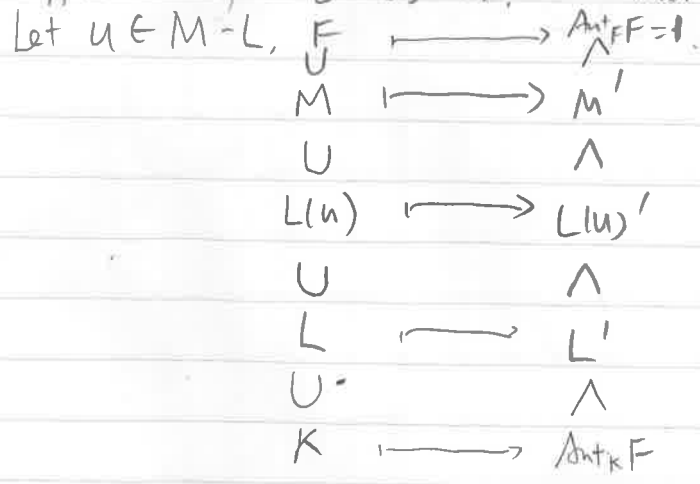 Let u ∈ M-L, F ⟼ Aut_F F = 1.
∪ ∧
M ⟼ M'
∪ ∧
L(u) ⟼ L(u)'
∪ ∧
L ⟼ L'
∪ ∧
K ⟼ Aut_K F